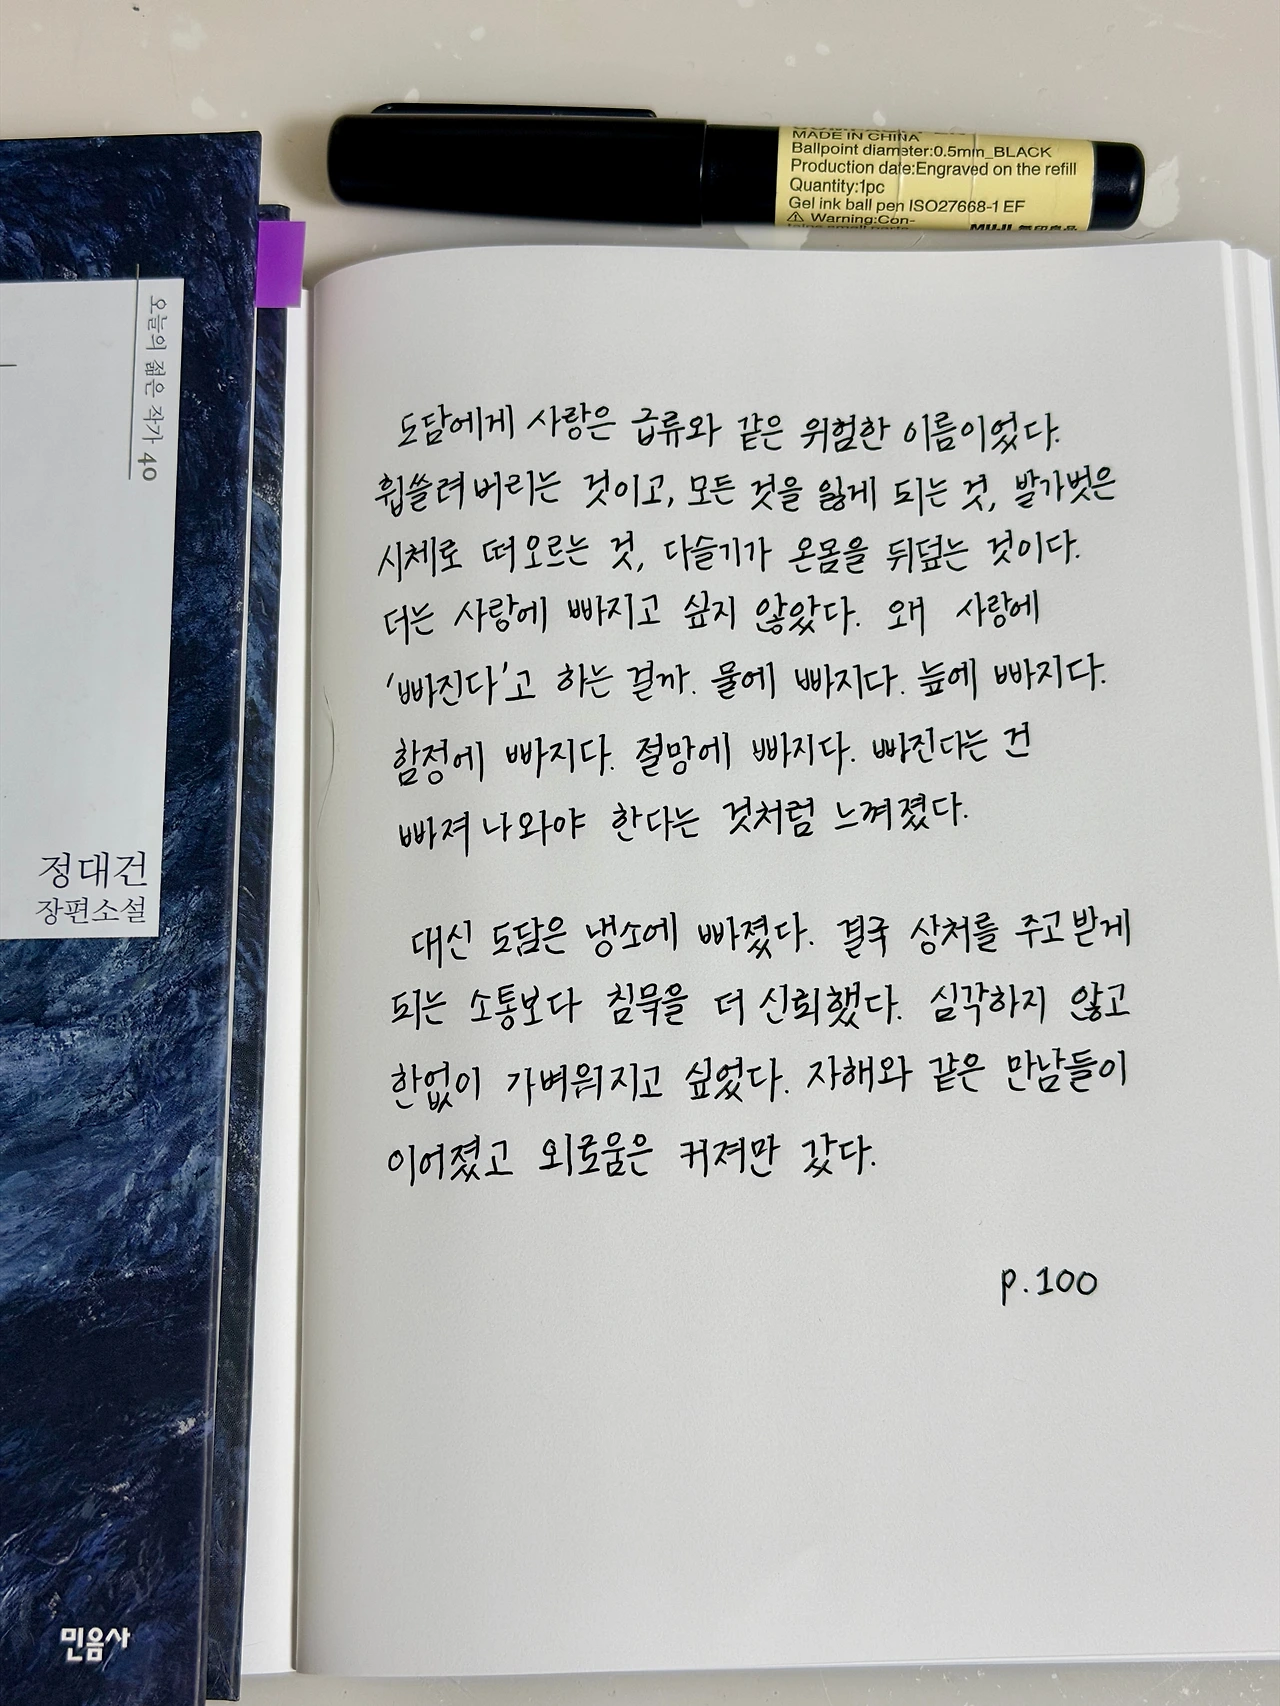 MADE IN CHINA
Ballpoint diameter:0.5mm_BLACK
Production date:Engraved on the refill
Quantity:1pc
Gel ink ball pen ISO27668-1 EF
⚠ Warning:Con-
tains small parts
MUJI 無印良品
오늘의 젊은 작가 40
정대건
장편소설
민음사
도담에게 사랑은 급류와 같은 위험한 이름이었다.
휩쓸려버리는 것이고, 모든 것을 잃게 되는 것, 발가벗은
시체로 떠오르는 것, 다슬기가 온몸을 뒤덮는 것이다.
더는 사랑에 빠지고 싶지 않았다. 왜 사랑에
'빠진다'고 하는 걸까. 물에 빠지다. 늪에 빠지다.
함정에 빠지다. 절망에 빠지다. 빠진다는 건
빠져나와야 한다는 것처럼 느껴졌다.
대신 도담은 냉소에 빠졌다. 결국 상처를 주고받게
되는 소통보다 침묵을 더 신뢰했다. 심각하지 않고
한없이 가벼워지고 싶었다. 자해와 같은 만남들이
이어졌고 외로움은 커져만 갔다.
p.100